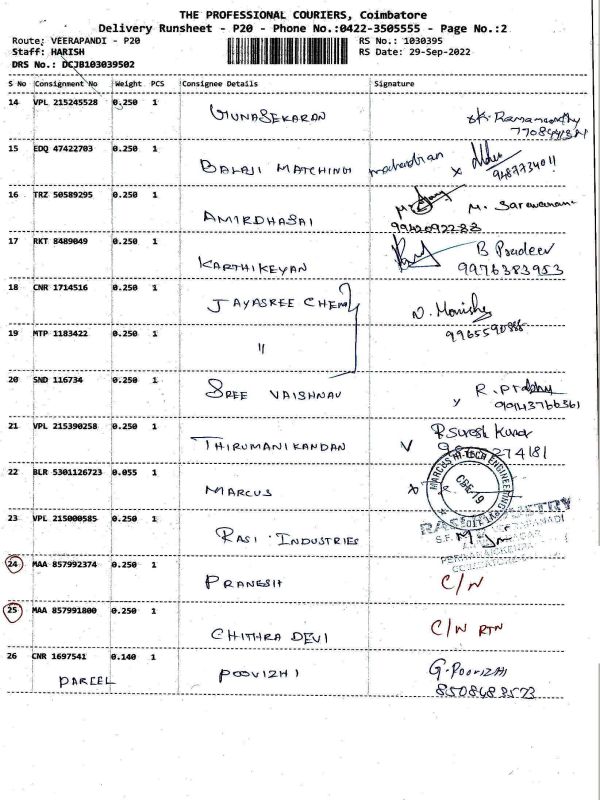 THE PROFESSIONAL COURIERS, Coimbatore
Delivery Runsheet - P20 - Phone No.:0422-3505555 - Page No.:2
Route: VEERAPANDI - P20 RS No.: 1030395
Staff: HARISH RS Date: 29-Sep-2022
DRS No.: DCJB103039502
S No Consignment No Weight PCS Consignee Details Signature
14 VPL 215245528 0.250 1 GUNASEKARAN
15 EDQ 47422703 0.250 1 BALAJI MATCHING mahendran x 9487734011
16 TRZ 50589295 0.250 1 AMIRDHASAI M. Saravanan
9942092288
17 RKT 8489049 0.250 1 KARTHIKEYAN B Pradeev
9976383953
18 CNR 1714516 0.250 1 JAYASREE CHEM N. Monisha
19 MTP 1183422 0.250 1 "
20 SND 116734 0.250 1 SREE VAISHNAV R. Prabhu
21 VPL 215390258 0.250 1 THIRUMANIKANDAN V P Suresh Kumar
22 BLR 5301126723 0.055 1 MARCUS x
MARCUS HI-TECH ENGINEERING PVT LTD
CBE-19
23 VPL 215000585 0.250 1 RASI INDUSTRIES
24 MAA 857992374 0.250 1 PRANESH C/N
25 MAA 857991800 0.250 1 CHITHRA DEVI C/N RTN
26 CNR 1697541 0.140 1 POOVIZHI G. Poovizhi
PARCEL 8508483573